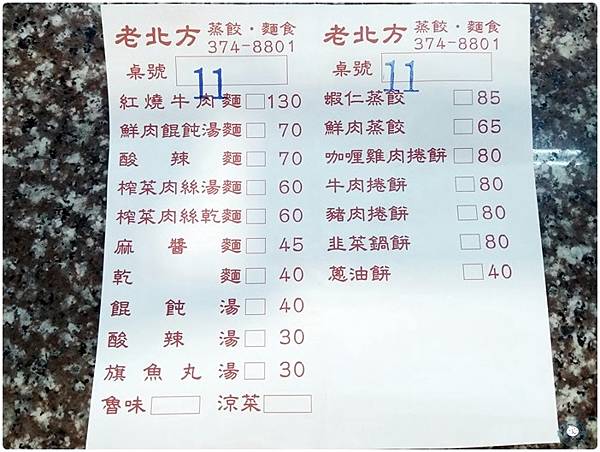 老北方 蒸餃·麵食
374-8801
桌號 11
紅燒牛肉麵 130
鮮肉餛飩湯麵 70
酸辣麵 70
榨菜肉絲湯麵 60
榨菜肉絲乾麵 60
麻醬麵 45
乾麵 40
餛飩湯 40
酸辣湯 30
旗魚丸湯 30
魯味 涼菜
老北方 蒸餃·麵食
374-8801
桌號 11
蝦仁蒸餃 85
鮮肉蒸餃 65
咖喱雞肉捲餅 80
牛肉捲餅 80
豬肉捲餅 80
韭菜鍋餅 80
蔥油餅 40